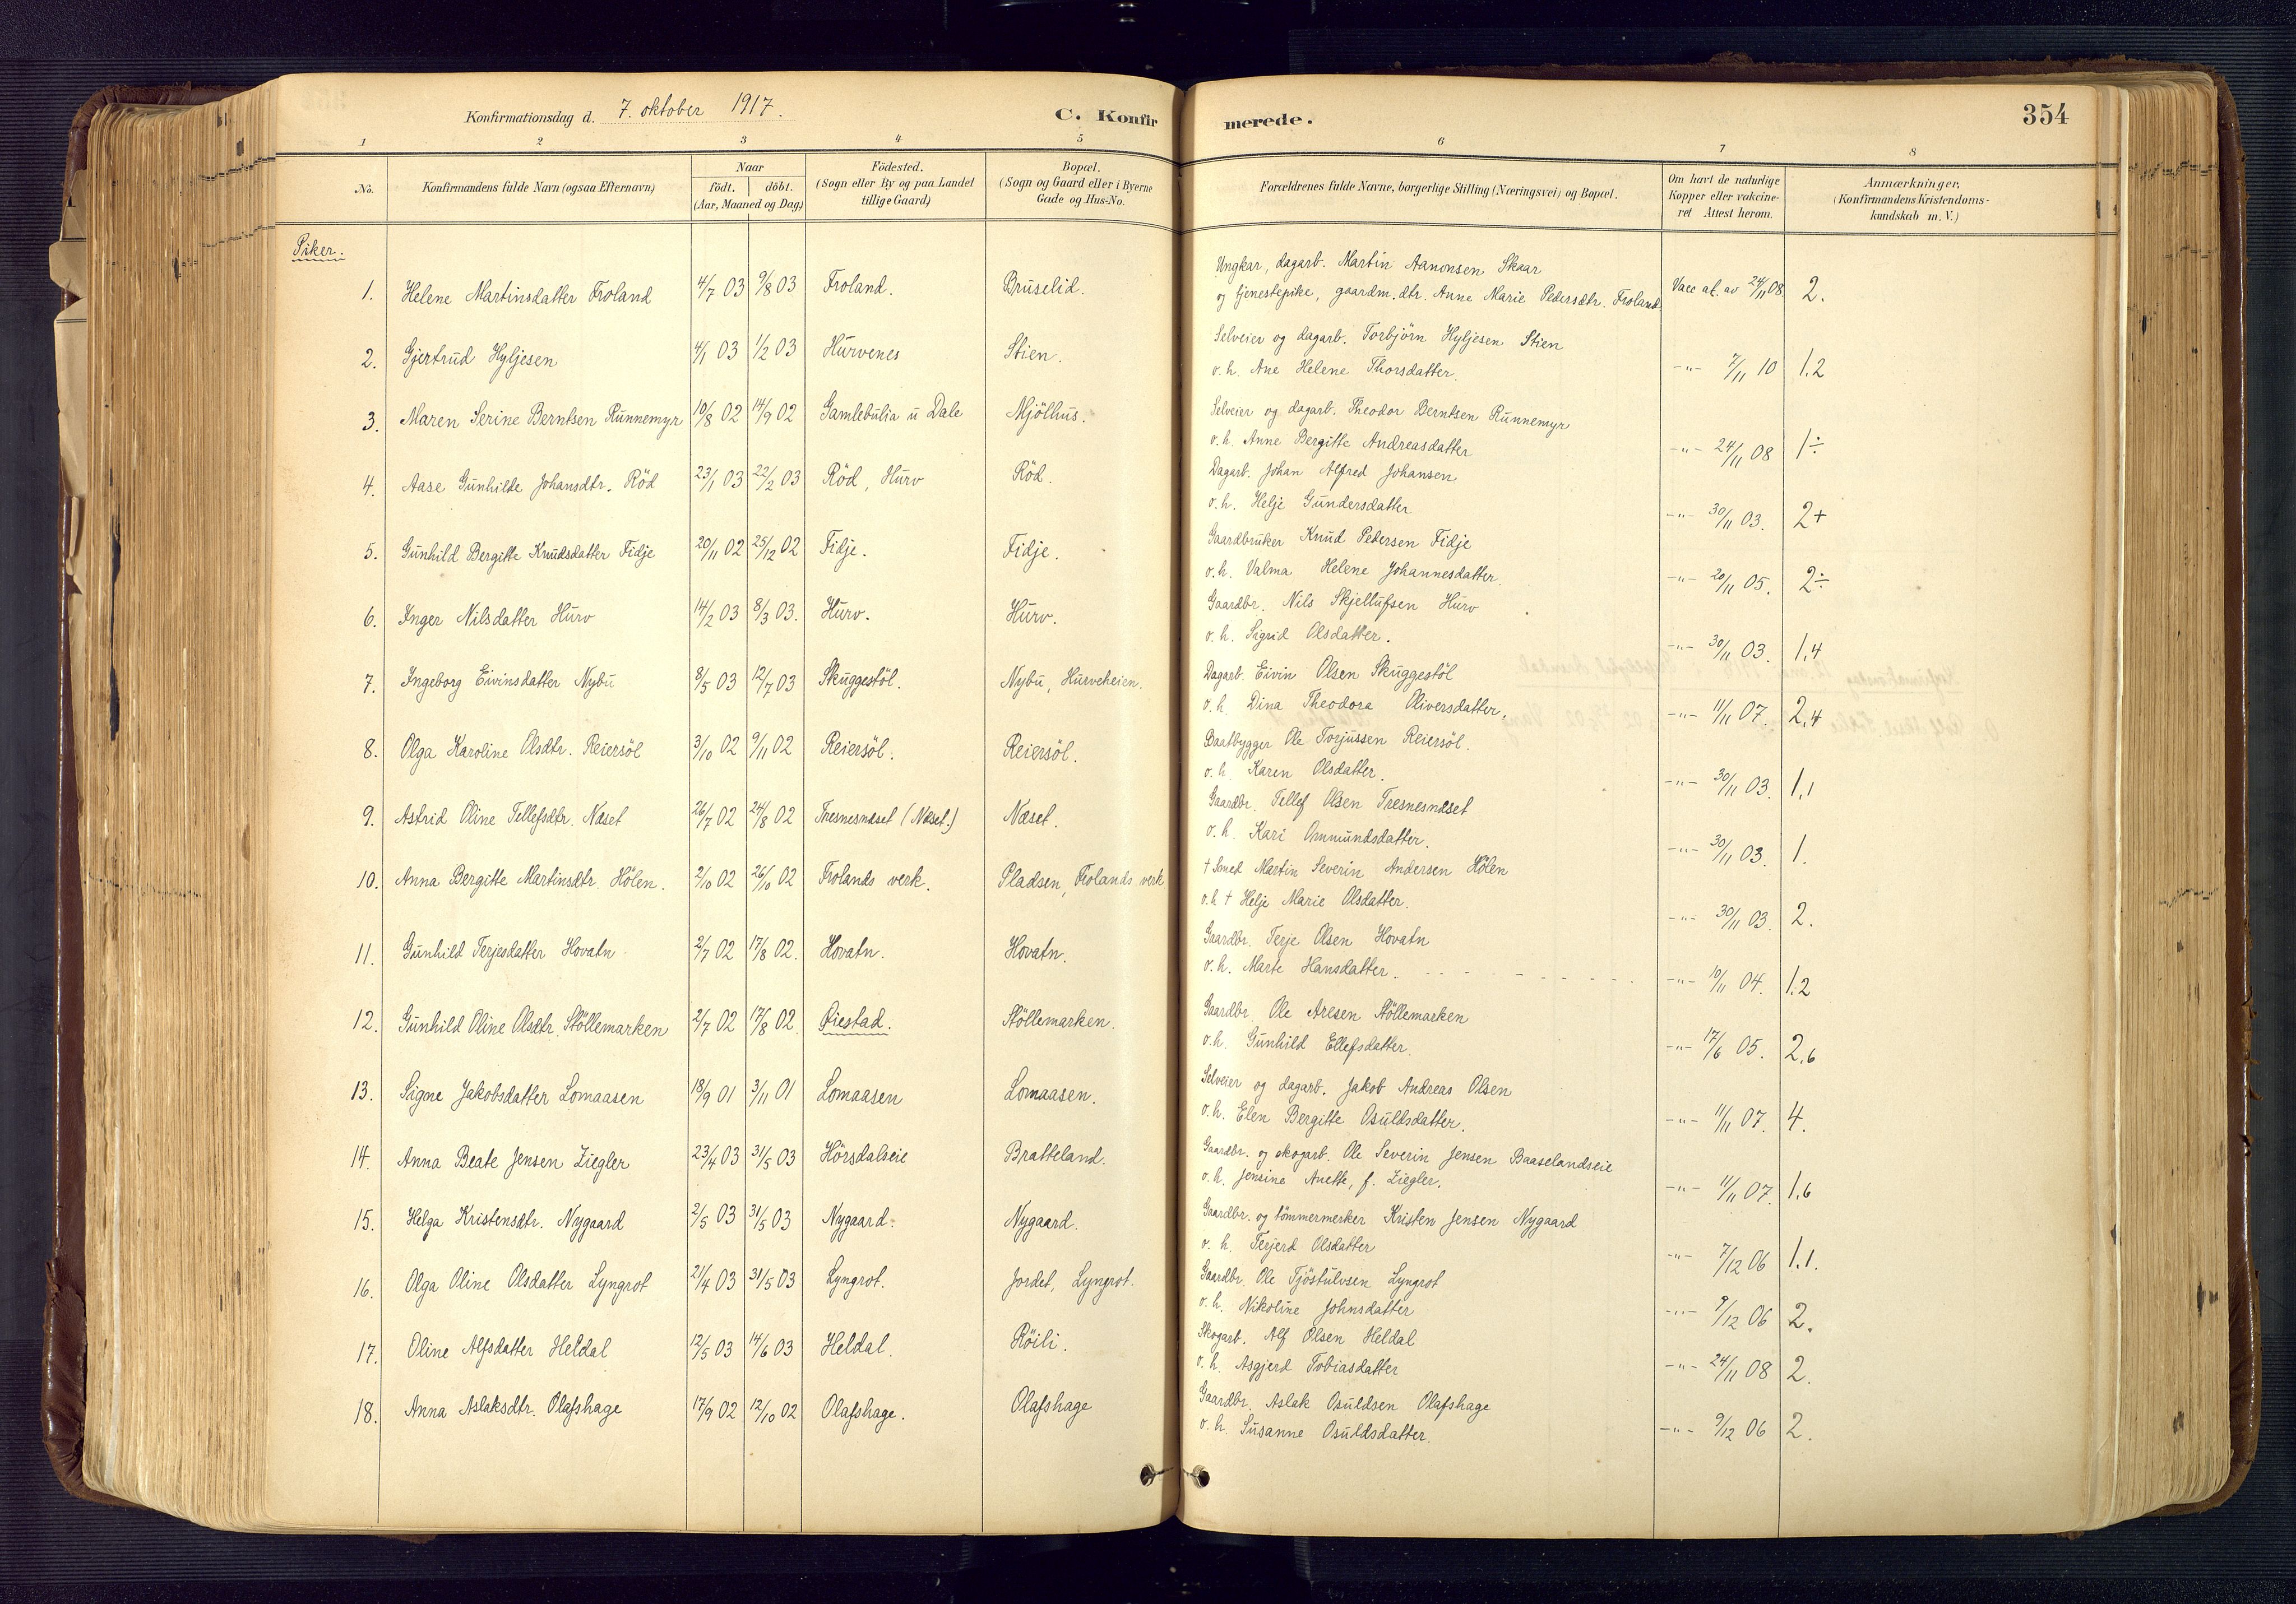 Konfirmationsdag d. 7. oktober 1917.
C. Konfirmerede.
354
1 2 3 4 5 6 7 8
No.
Konfirmandens fulde Navn (ogsaa Efternavn)
Naar
födt. döbt.
(Aar, Maaned og Dag)
Födested.
(Sogn eller By og paa Landet
tillige Gaard)
Bopæl.
(Sogn og Gaard eller i Byerne
Gade og Hus-No.
Forældrenes fulde Navne, borgerlige Stilling (Næringsvei) og Bopæl.
Om havt de naturlige
Kopper eller vakcine-
ret Attest herom.
Anmærkninger.
(Konfirmandens Kristendoms-
kundskab m. V.)
Piker.
Ungkar, dagarb. Martin Aanonsen Skaar
1. Helene Martinsdatter Froland 4/7 03 9/8 03 Froland. Bruselid. og tjenestepike, gaardm.dtr. Anne Marie Pedersdtr. Froland Vacc at. av 24/11 08 2.
Selveier og dagarb. Torbjörn Hyljesen Stien
2. Gjertrud Hyljesen 4/1 03 1/2 03 Hurvenes Stien. o. h. Ane Helene Thorsdatter. -"- 7/11 10 1.2
Selveier og dagarb. Theodor Berntsen Runnemyr
3. Maren Serine Berntsen Runnemyr 10/8 02 14/9 02 Gamlebulia u Dale Mjölhus. o. h. Anne Bergitte Andreasdatter -"- 24/11 08 1÷
Dagarb. Johan Alfred Johansen
4. Aase Gunhilde Johansdtr. Röd 23/1 03 22/2 03 Röd, Hurv Röd. o. h. Helje Gundersdatter -"- 30/11 03. 2+
Gaardbruker Knud Pedersen Fidje
5. Gunhild Bergitte Knudsdatter Fidje 20/11 02 25/12 02 Fidje. Fidje. o. h. Valma Helene Johannesdatter. -"- 20/11 05. 2÷
Gaardbr. Nils Skjellufsen Hurv
6. Inger Nilsdatter Hurv 14/2 03 8/3 03. Hurv. Hurv. o. h. Sigrid Olsdatter. -"- 30/11 03. 1,4
Dagarb. Eivin Olsen Skuggestöl
7. Ingeborg Eivinsdatter Nybu 8/5 03 12/7 03 Skuggestöl. Nybu, Hurveheien. o. h. Dina Theodora Oliversdatter. -"- 11/11 07. 2,4
Baatbygger Ole Torjussen Reiersöl.
8. Olga Karoline Olsdtr. Reiersöl 3/10 02 9/11 02 Reiersöl. Reiersöl. o. h. Karen Olsdatter. -"- 30/11 03. 1,1
Gaardbr. Tellef Olsen Tresnesnæset
9. Astrid Oline Tellefsdtr. Næset 26/7 02 24/8 02 Tresnesnæset (Næset.) Næset. o. h. Kari Ommundsdatter. -"- 30/11 03. 1.
† Smed Martin Severin Andersen Hölen
10. Anna Bergitte Martinsdtr. Hölen. 2/10 02 26/10 02 Frolands verk. Pladsen, Frolands verk o. h † Helje Marie Olsdatter. -"- 30/11 03. 2.
Gaardbr. Terje Olsen Hovatn
11. Gunhild Terjesdatter Hovatn 2/7 02 17/8 02. Hovatn. Hovatn. o. h. Marte Hansdatter. -"- 10/11 04. 1.2
Gaardbr. Ole Aresen Stöllemarken
12. Gunhild Oline Olsdtr. Stöllemarken 2/7 02 17/8 02. Øiestad. Stöllemarken. o. h. Gunhild Ellefsdatter. -"- 17/6 05. 2,6
Selveier og dagarb. Jakob Andreas Olsen
13. Signe Jakobsdatter Lomaasen 18/9 01 3/11 01 Lomaasen Lomaasen. o. h. Elen Bergitte Osuldsdatter. -"- 11/11 07. 4.
Gaardbr. og skogarb. Ole Severin Jensen Baaselandseie
14. Anna Beate Jensen Ziegler 23/4 03 31/5 03 Hörsdalseie Bratteland. o. h. Jensine Anette, f. Ziegler. -"- 11/11 07. 1,6
Gaardbr. og tömmermerker Kristen Jensen Nygaard
15. Helga Kristensdtr. Nygaard 2/5 03 31/5 03 Nygaard. Nygaard. o. h. Terjerd Olsdatter -"- 7/12 06 1.1.
Gaardbr. Ole Tjöstulvsen Lyngrot
16. Olga Oline Olsdatter Lyngrot 21/4 03 31/5 03 Lyngrot. Jordet, Lyngrot. o. h. Nikoline Johnsdatter -"- 9/12 06 2.
Skogarb. Alf Olsen Heldal
17. Oline Alfsdatter Heldal 12/5 03 14/6 03 Heldal. Röili. o. h. Asgjerd Tobiasdatter -"- 24/11 08 2.
Gaardbr. Aslak Osuldsen Olafshage
18. Anna Aslaksdtr. Olafshage 17/9 02 12/10 02 Olafshage. Olafshage o. h. Susanne Osuldsdatter. -"- 9/12 06 2.